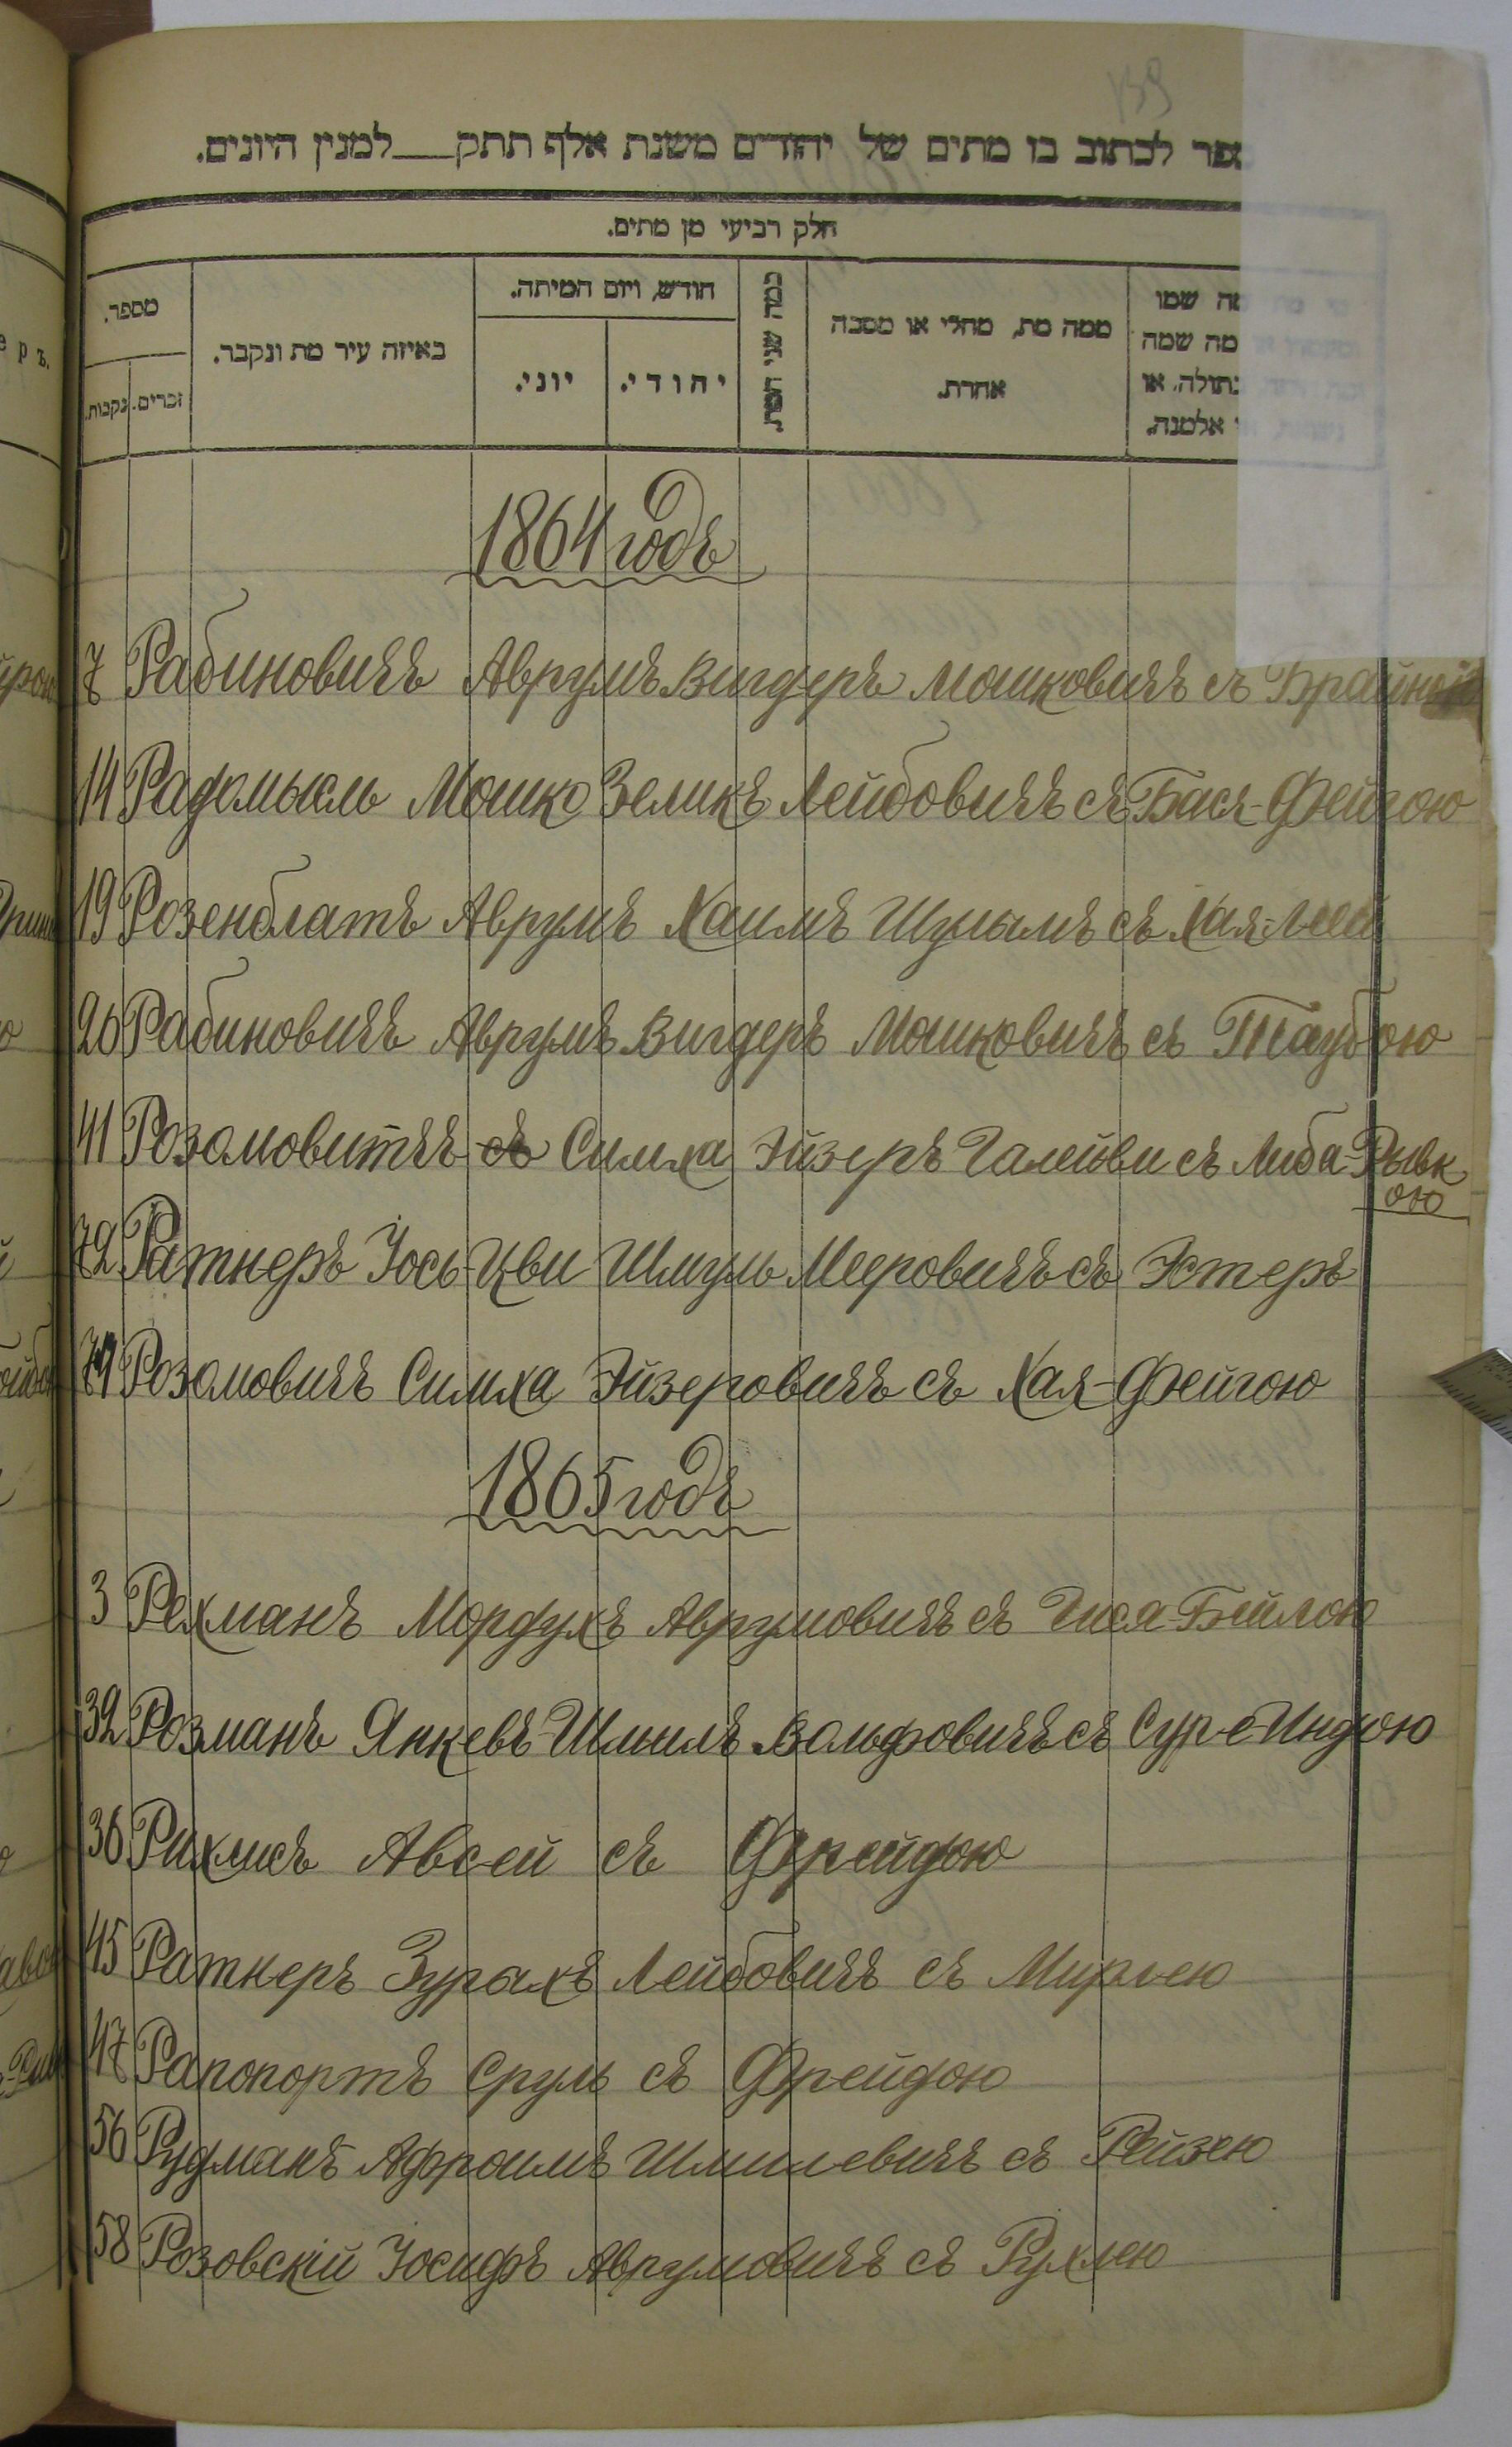 139
ספר לכתוב בו מתים של יהודים משנת אלף תתק___למנין היונים.
חלק רביעי מן מתים.
מה שמו
מה שמה
בתולה, או
אלמנה.
ממה מת, מחלי או מסבה
אחרת.
כמה שני המת.
חודש, ויום המיתה.
יהודי.
יוני.
באיזה עיר מת ונקבר.
מספר.
זכרים.
נקבות.
1864 годъ
7 Рабиновичъ Аврумъ Вигдеръ Мошковичъ съ Брайной
14 Радомысль Мошко Зеликъ Лейбовичъ съ Бася-Фейгою
19 Розенблатъ Аврумъ Хаимъ съ Хая-Леей
26 Рабиновичъ Аврумъ Вигдеръ Мошковичъ съ Таубою
41 Розомовитчъ съ Симха Эйзеръ съ Либа-Рывк
ою
72 Ратнеръ Іось-Цви Шмуль Мееровичъ съ Эстеръ
Розомовичъ Симха Эйзеровичъ съ Хая-Фейгою
1865 годъ
3 Рехманъ Мордухъ Аврумовичъ съ Гися-Бейлою
32 Розманъ Янкевъ-Шмилъ Вольфовичъ съ Суре-Индою
36 Рихлисъ Авсей съ Фрейдою
45 Ратнеръ Зурахъ Лейбовичъ съ Мирлею
47 Рапопортъ Сруль съ Фрейдою
56 Рудманъ Афроимъ Шмилевичъ съ Рейзею
58 Розовскій Іосифъ Аврумовичъ съ Рухлею